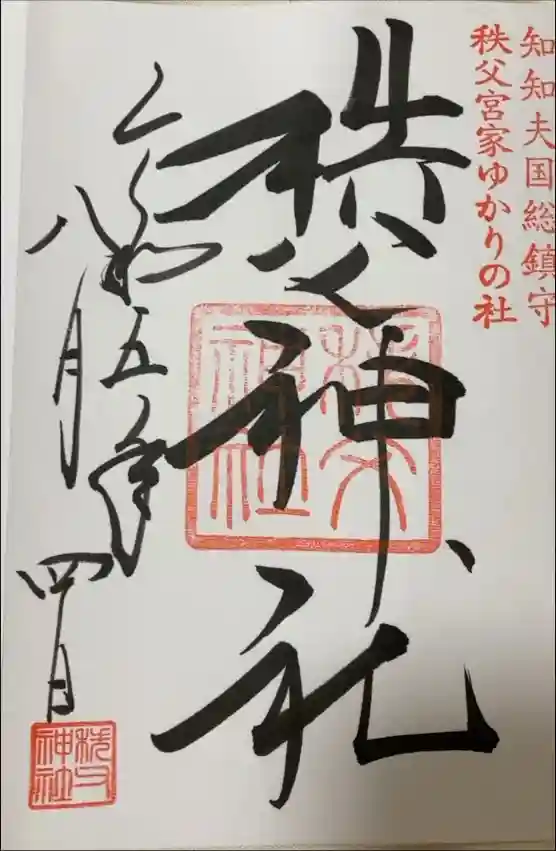 知知夫国総鎮守
秩父宮家ゆかりの社
秩父神社
秩父神社
令和五年
八月四日
秩父神社